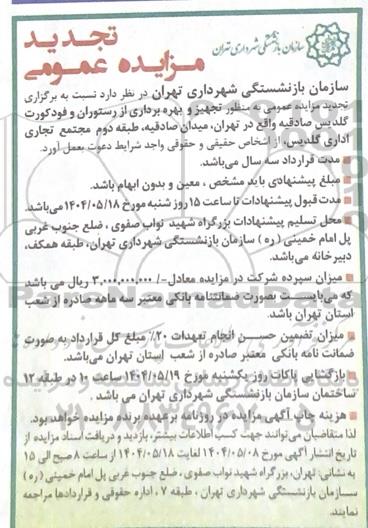 سازمان بازنشستگی شهرداری تهران
تجدید
مزایده عمومی
سازمان بازنشستگی شهرداری تهران در نظر دارد نسبت به برگزاری
تجدید مزایده عمومی به منظور تجهیز و بهره برداری از رستوران و فودکورت
گلدیس صادقیه واقع در تهران، میدان صادقیه، طبقه دوم مجتمع تجاری
اداری گلدیس، از اشخاص حقیقی و حقوقی واجد شرایط دعوت بعمل آورد.
■ مدت قرارداد سه سال می‌باشد.
■ مبلغ پیشنهادی باید مشخص ، معین و بدون ابهام باشد.
■ مدت قبول پیشنهادات تا ساعت ۱۵ روز شنبه مورخ ۱۴۰۴/۰۵/۱۸ می‌باشد.
■ محل تسلیم پیشنهادات بزرگراه شهید نواب صفوی ، ضلع جنوب غربی
پل امام خمینی ( ره ) سازمان بازنشستگی شهرداری تهران، طبقه همکف،
دبیرخانه می‌باشد.
■ میزان سپرده شرکت در مزایده معادل -/۳,۰۰۰,۰۰۰,۰۰۰ ریال می باشد
که می‌بایست بصورت ضمانتنامه بانکی معتبر سه ماهه صادره از شعب
استان تهران باشد.
■ میزان تضمین حسن انجام تعهدات ۲۰٪ مبلغ کل قرارداد به صورت
ضمانت نامه بانکی معتبر صادره از شعب استان تهران می‌باشد.
■ بازگشایی پاکات روز یکشنبه مورخ ۱۴۰۴/۰۵/۱۹ ساعت ۱۰ در طبقه ۱۲
ساختمان سازمان بازنشستگی شهرداری تهران می باشد .
■ هزینه چاپ آگهی مزایده در روزنامه برعهده برنده مزایده خواهد بود.
لذا متقاضیان می‌توانند جهت کسب اطلاعات بیشتر، بازدید و دریافت اسناد مزایده از
تاریخ انتشار آگهی مورخ ۱۴۰۴/۰۵/۰۸ لغایت ۱۴۰۴/۰۵/۱۸ از ساعت ۸ صبح الی ۱۵
به نشانی: تهران، بزرگراه شهید نواب صفوی ، ضلع جنوب غربی پل امام خمینی (ره )
سازمان بازنشستگی شهرداری تهران ، طبقه ۷ ، اداره حقوقی و قراردادها مراجعه
نمایند.